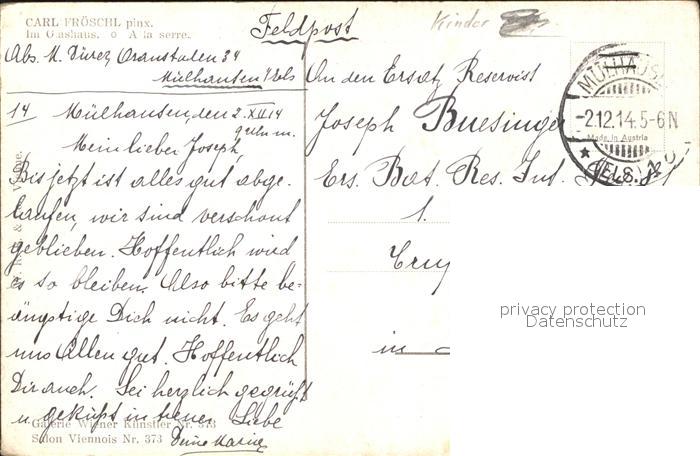 CARL FRÖSCHL pinx.
Im Glashaus. o A la serre.
Feldpost
Kinder
Abs. M. Oranstaden 34
Mülhausen i/Els
14 Mülhausen, den 2. XII 14
9 Uhr m.
Mein lieber Joseph,
Bis jetzt ist alles gut abge-
laufen, wir sind verschont
geblieben. Hoffentlich wird
es so bleiben. Also bitte be-
ängstige Dich nicht. Es geht
uns Allen gut. Hoffentlich
Dir auch. Sei herzlich gegrüßt
u. geküßt in treuer Liebe
Deine
Galerie Wiener Künstler Nr. 373
Salon Viennois Nr. 373
An den Ersatz Reservist
Joseph Buesinge
Ers. Bat. Res. Inf.
1.
in
MÜLHAUSE
-2.12.14.5-6N
Made in Austria
(ELS.)
privacy protection
Datenschutz